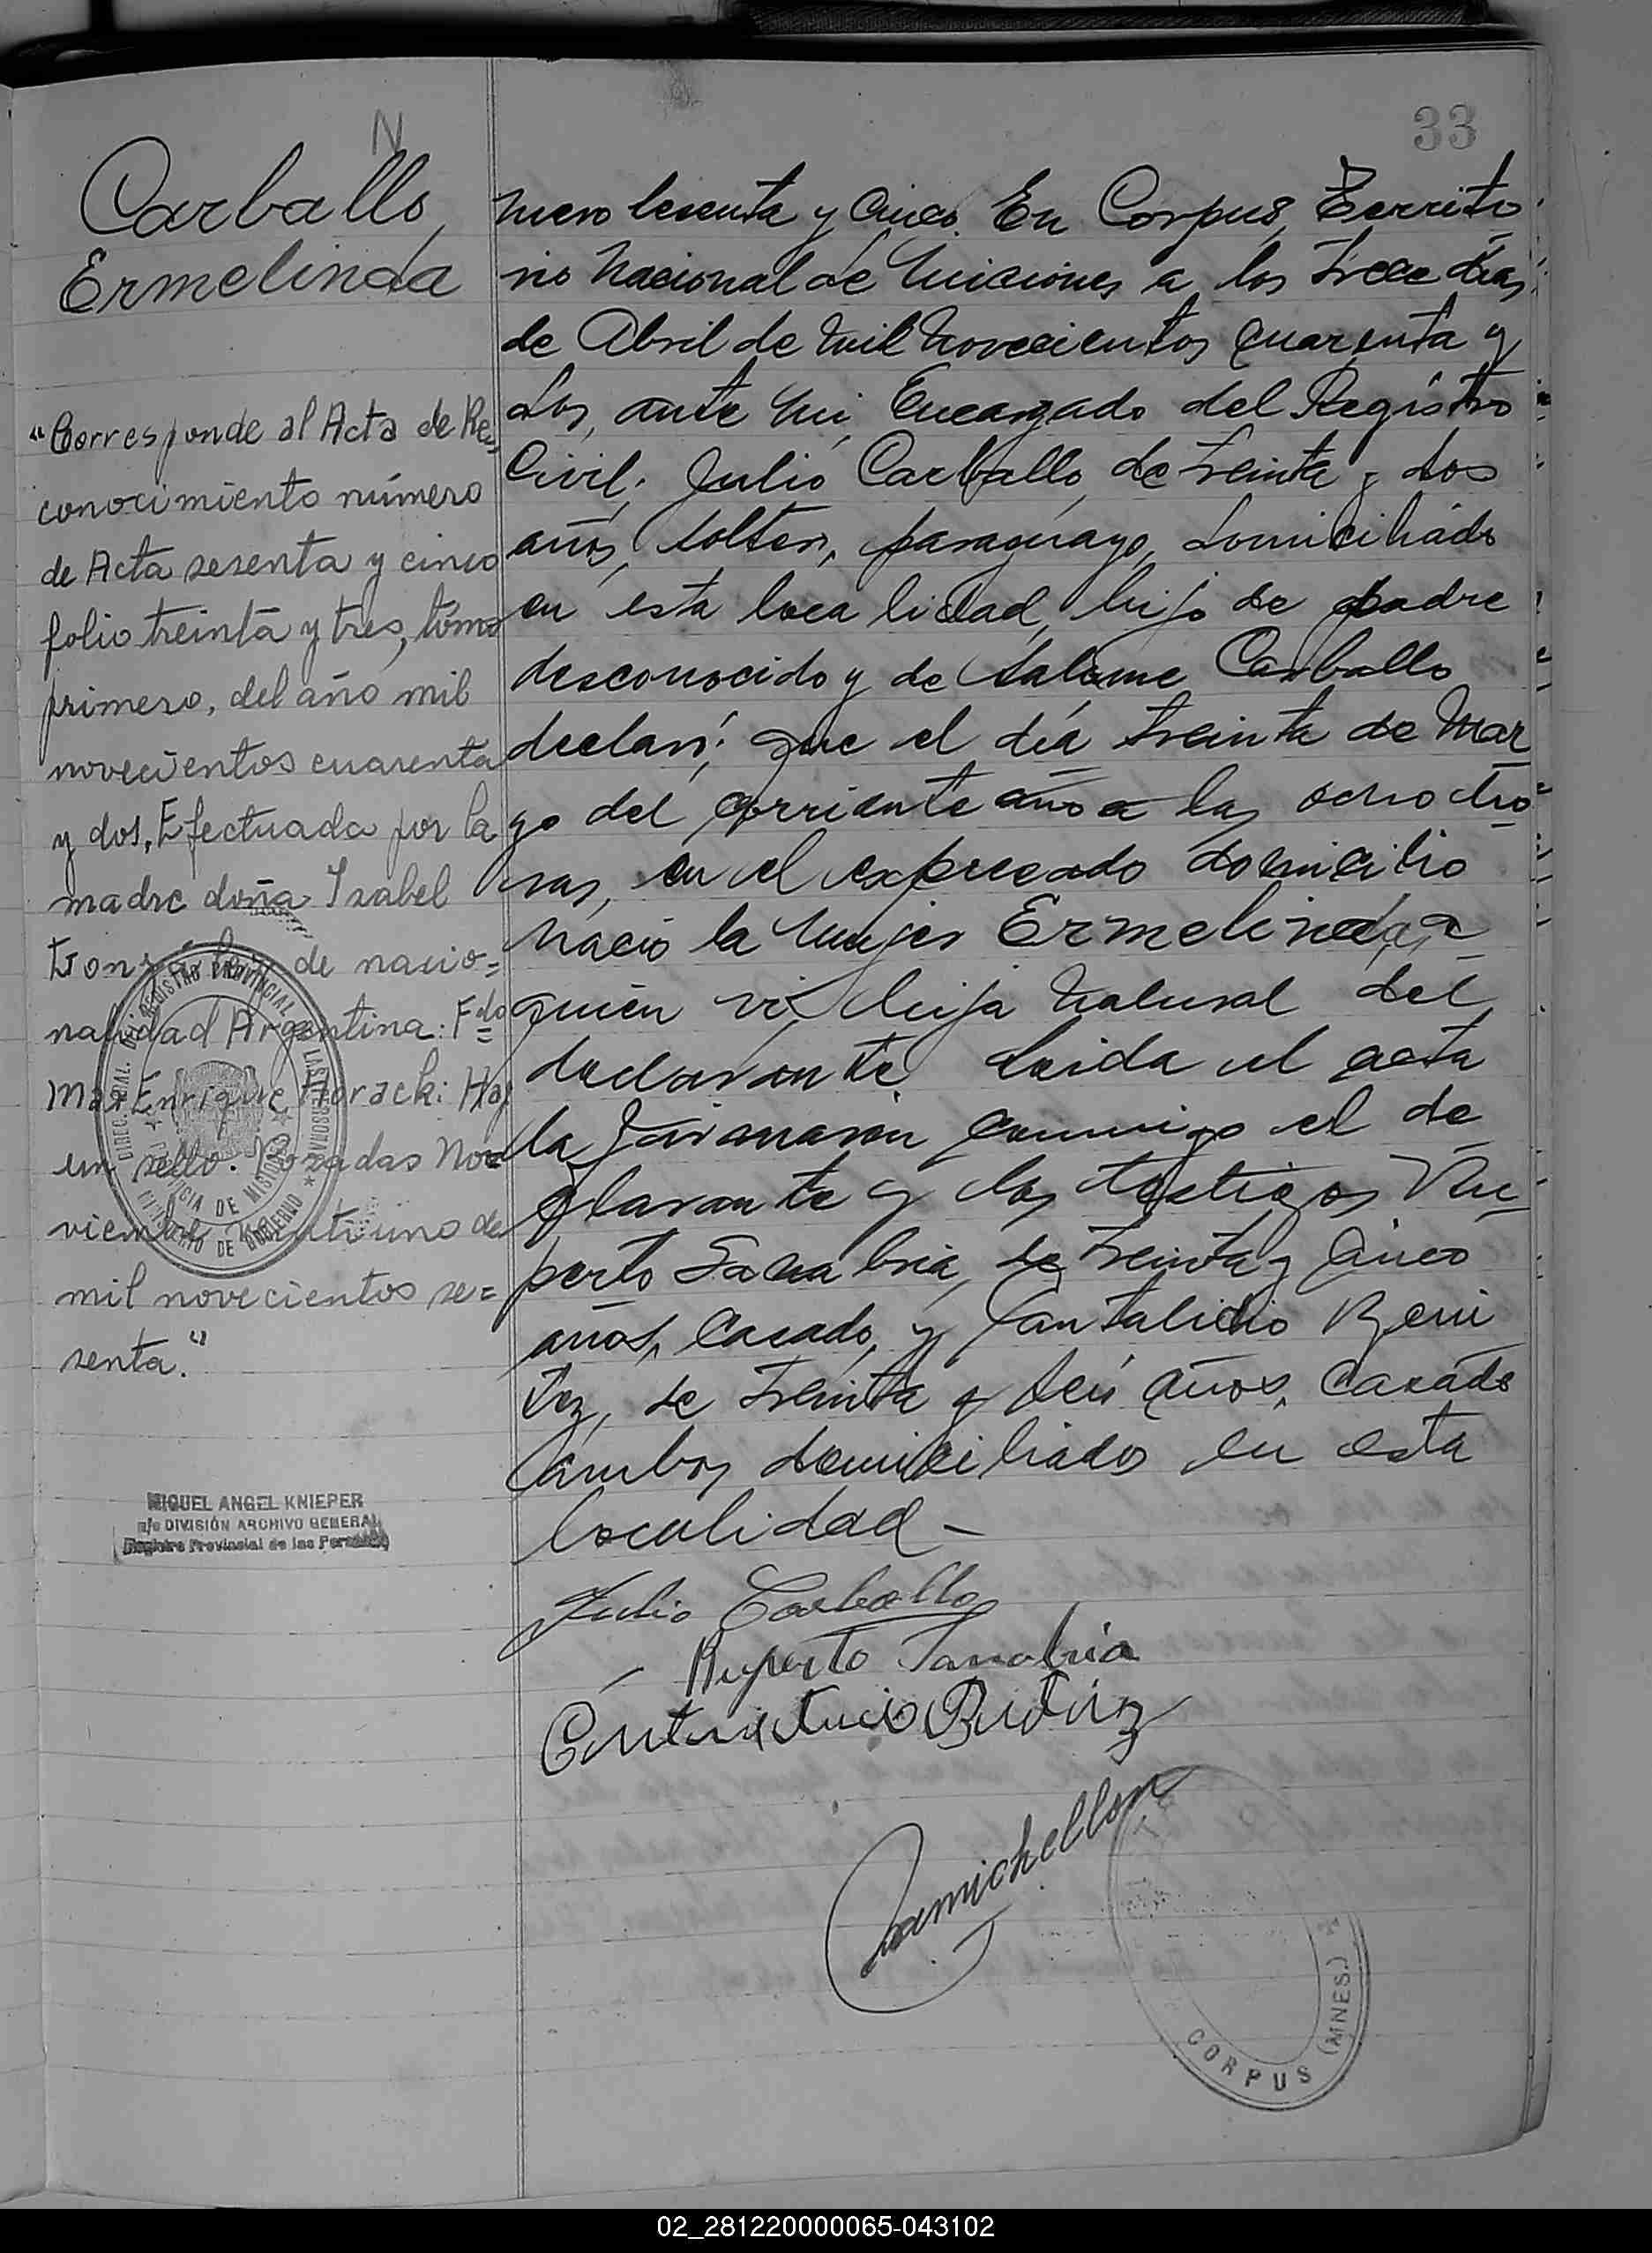 33
N
Carballo,
Ermelinda
"Corresponde al Acta de Re=
conocimiento número
de Acta sesenta y cinco
folio treinta y tres, tomo
primero, del año mil
novecientos cuarenta
y dos. Efectuada por la
madre doña Isabel
de nacio=
nalidad Argentina: Fdo
Max Enrique Horack: Hay
un sello. Posadas No
viembre veintiuno de
mil novecientos se=
senta."
DIREC. GRAL. DEL REGISTRO PROVINCIAL DE LAS PERSONAS
PROVINCIA DE MISIONES
MINISTERIO DE GOBIERNO
MIGUEL ANGEL KNIEPER
a/c DIVISIÓN ARCHIVO GENERAL
Registro Provincial de las Personas
mero sesenta y cinco. En Corpus, Territo
rio Nacional de Misiones a los trece dias
de Abril de mil novecientos cuarenta y
dos, ante mi, Encargado del Registro
Civil; Julio Carballo, de treinta y dos
años, soltero, paraguayo, domiciliado
en esta localidad, hijo de padre
desconocido y de Salome Carballo
declaró; que el día treinta de Mar
zo del corriente año a las ocho ho
ras, en el expresado domicilio
nació la mujer Ermelinda, a
quien vi, hija natural del
declarante. Leida el acta
la firmaron conmigo el de
clarante y los testigos Ru
perto Sanabria, de treinta y cinco
años, casado, y Cantalicio Beni
tez, de treinta y seis años, casado
ambos domiciliados en esta
localidad –
Julio Carballo
Ruperto Sanabria
CORPUS (MNES.)
02_281220000065-043102